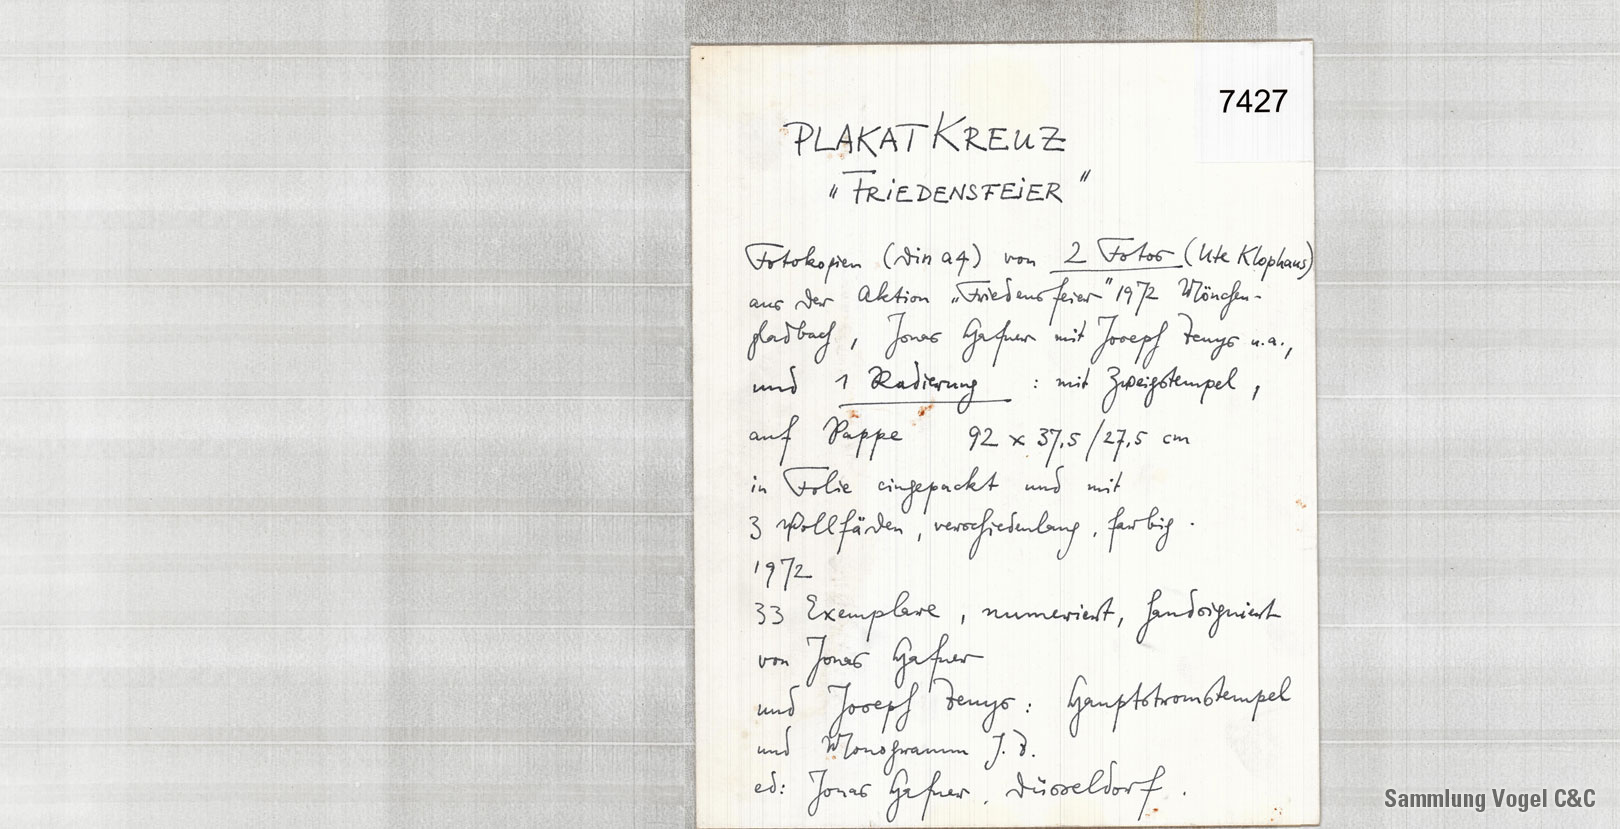 7427
PLAKATKREUZ
"FRIEDENSFEIER"
Fotokopien (din a4) von 2 Fotos (Ute Klophaus)
aus der Aktion „Friedensfeier" 1972 Mönchen-
gladbach, Jonas Hafner mit Joseph Beuys u.a.,
und 1 Radierung : mit Zweigstempel,
auf Pappe 92 x 37,5/27,5 cm
in Folie eingepackt und mit
3 Wollfäden, verschiedenlang, farbig.
1972
33 Exemplare, numeriert, handsigniert
von Jonas Hafner
und Joseph Beuys: Hauptstromstempel
und Monogramm J.B.
ed: Jonas Hafner, Düsseldorf.
Sammlung Vogel C&C